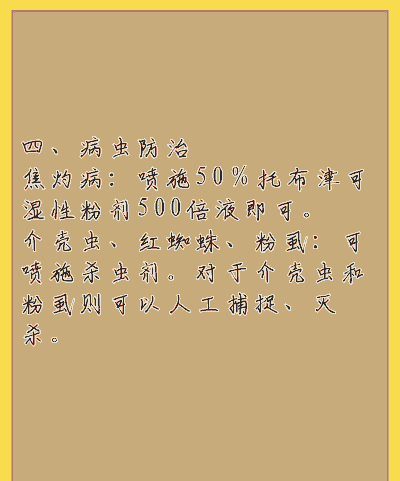 四、病虫防治
焦灼病：喷施50%托布津可
湿性粉剂500倍液即可。
介壳虫、红蜘蛛、粉虱：可
喷施杀虫剂。对于介壳虫和
粉虱则可以人工捕捉、灭
杀。